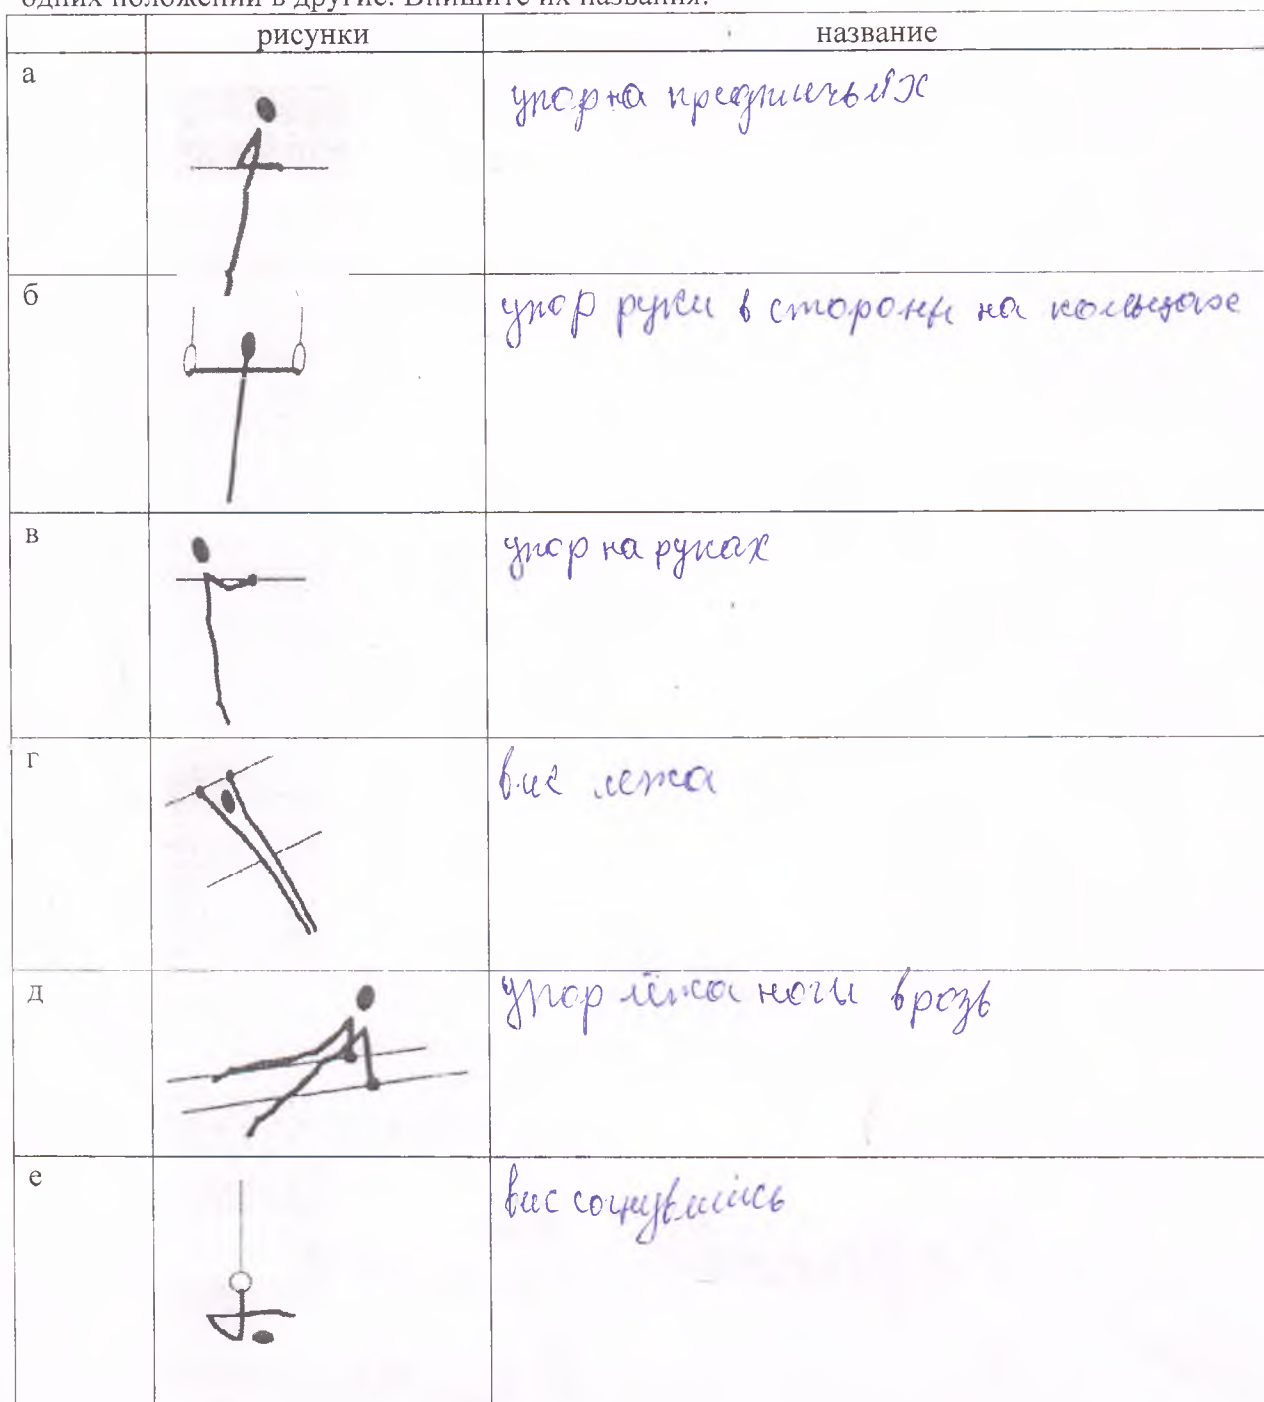 одних положений в другие. Впишите их названия.
рисунки название
а упор на предплечьях
б упор руки в стороны на кольцах
в упор на руках
г вис лежа
д упор лёжа ноги врозь
е вис согнувшись